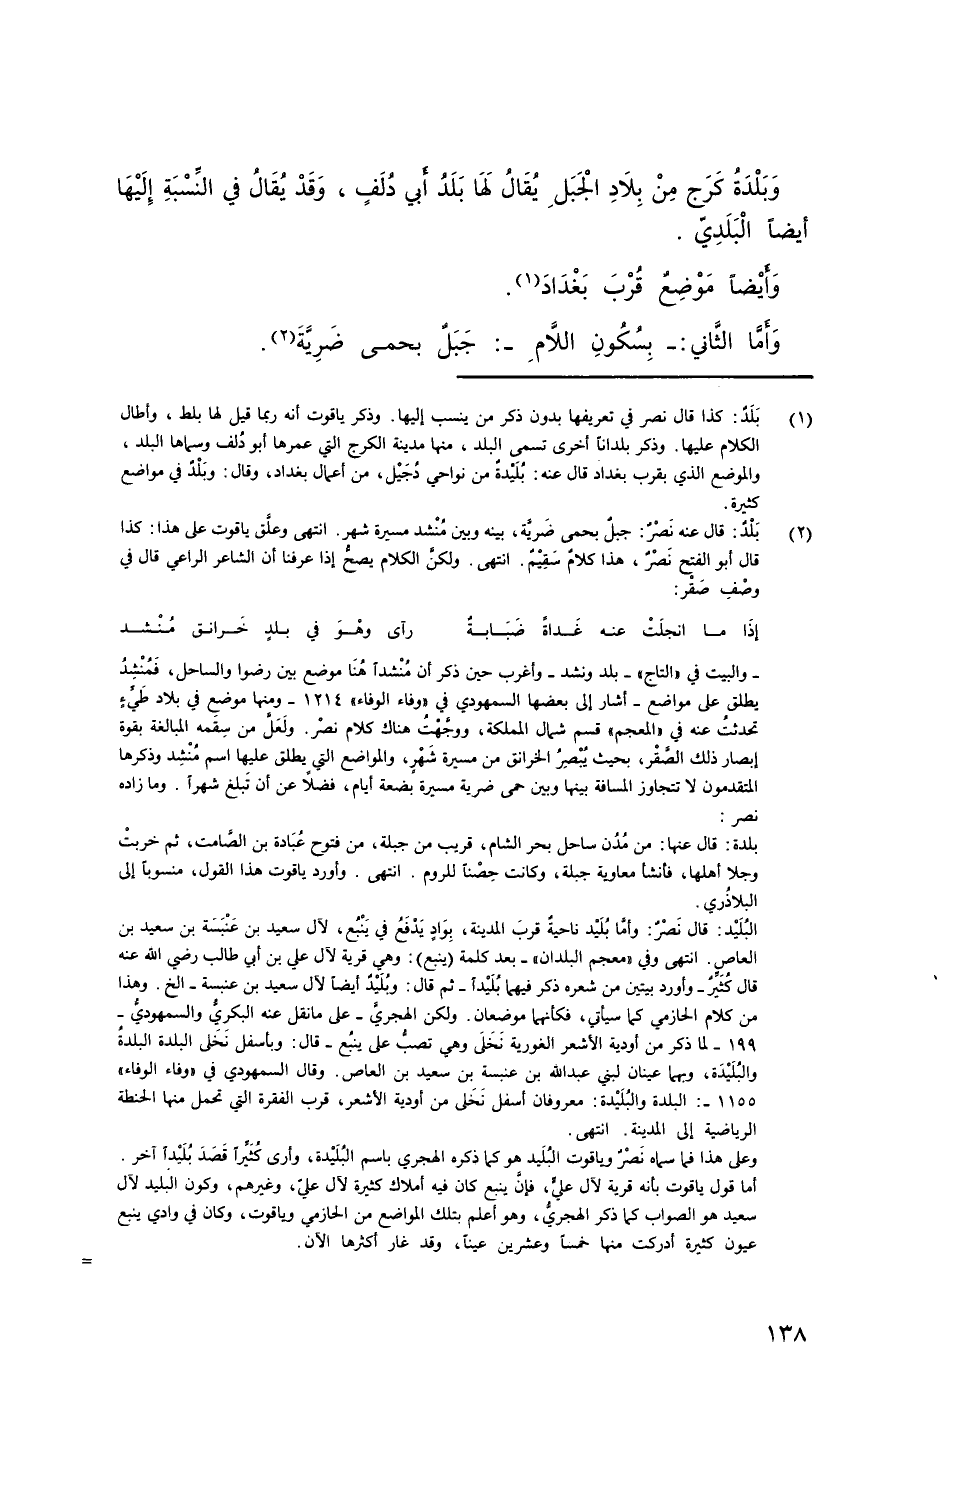 وَبَلْدَةُ كَرَجٍ مِنْ بِلَادِ الْجَبَلِ يُقَالُ لَهَا بَلَدُ أَبي دُلَفٍ ، وَقَدْ يُقَالُ في النِّسْبَةِ إِلَيْهَا
أيضاً الْبَلَدِيّ .
وَأَيْضاً مَوْضِعٌ قُرْبَ بَغْدَادَ(١).
وَأَمَّا الثَّاني :ـ بِسُكُونِ اللَّامِ ـ: جَبَلٌ بحمى ضَرِيَّةَ(٢).
(١) بَلَدٌ: كذا قال نصر في تعريفها بدون ذكر من ينسب إليها. وذكر ياقوت أنه ربما قيل لها بلط ، وأطال
الكلام عليها. وذكر بلداناً أخرى تسمى البلد ، منها مدينة الكرج التي عمرها أبو دُلف وسماها البلد ،
والموضع الذي بقرب بغداد قال عنه: بُلَيْدةٌ من نواحي دُجَيْل، من أعمال بغداد، وقال: وبَلْدٌ في مواضع
كثيرة.
(٢) بَلْدٌ: قال عنه نَصْرٌ: جبلٌ بحمى ضَريَّة، بينه وبين مُنْشد مسيرة شهر. انتهى وعلَّق ياقوت على هذا: كذا
قال أبو الفتح نَصْرٌ ، هذا كلامٌ سَقِيْمٌ. انتهى. ولكنَّ الكلام يصحُّ إذا عرفنا أن الشاعر الراعي قال في
وصْفِ صَقْر:
إذَا مـا انجلَتْ عنـه غَـداةً ضَبَـابـةٌ رآى وهْـوَ في بـلدٍ خَـرانـق مُنْـشـد
ـ والبيت في «التاج» ـ بلد ونشد ـ وأغرب حين ذكر أن مُنْشداً هُنَا موضع بين رضوا والساحل، فَمُنْشِدُ
يطلق على مواضع ـ أشار إلى بعضها السمهودي في «وفاء الوفاء» ١٢١٤ ـ ومنها موضع في بلاد طَيِّءٍ
تحدثتُ عنه في «المعجم» قسم شمال المملكة، ووجَّهْتُ هناك كلام نصرْ. ولَعَلَّ من سِقَمه المبالغة بقوة
إبصار ذلك الصَّقْر، بحيث يُبْصرُ الخرانق من مسيرة شَهْرٍ، والمواضع التي يطلق عليها اسم مُنْشِد وذكرها
المتقدمون لا تتجاوز المسافة بينها وبين حمى ضرية مسيرة بضعة أيام، فضلاً عن أن تَبلغ شهراً . وما زاده
نصر :
بلدة: قال عنها: من مُدُن ساحل بحر الشام، قريب من جبلة، من فتوح عُبَادة بن الصَّامت، ثم خربتْ
وجلا أهلها، فأنشأ معاوية جبلة، وكانت حِصْناً للروم . انتهى . وأورد ياقوت هذا القول، منسوباً إلى
البلاذُري.
البُلَيْد: قال نَصْرٌ: وأمَّا بُلَيْد ناحيةٌ قربَ المدينة، بِوَادٍ يَدْفَعُ في يَنْبُع، لآل سعيد بن عَنْبَسَة بن سعيد بن
العاص. انتهى وفي «معجم البلدان» ـ بعد كلمة (ينبع): وهي قرية لآل علي بن أبي طالب رضي الله عنه
قال كُثَيِّرٌ ـ وأورد بيتين من شعره ذكر فيهما بُلَيْداً ـ ثم قال: وبُلَيْدٌ أيضاً لآل سعيد بن عنبسة ـ الخ . وهذا
من كلام الحازمي كما سيأتي، فكأنهما موضعان. ولكن الهجريَّ ـ على مانقل عنه البكريُّ والسمهوديُّ ـ
١٩٩ ـ لما ذكر من أودية الأشعر الغورية نَخَلَى وهي تصبُّ على ينبُع ـ قال: وبأسفل نَخَلى البلدة البلدةُ
والبُلَيْدَة، وبهما عينان لبني عبدالله بن عنبسة بن سعيد بن العاص. وقال السمهودي في «وفاء الوفاء»
١١٥٥ ـ: البلدة والبُلَيْدة: معروفان أسفل نَخَلى من أودية الأشعر، قرب الفقرة التي تحمل منها الحنطة
الرياضية إلى المدينة. انتهى.
وعلى هذا فما سماه نَصْرٌ وياقوت البُلَيد هو كما ذكره الهجري باسم البُلَيْدة، وأرى كُثَيِّراً قَصَدَ بُلَيْداً آخر .
أما قول ياقوت بأنه قرية لآل عليٍّ، فإنَّ ينبع كان فيه أملاك كثيرة لآل عليّ، وغيرهم، وكون البليد لآل
سعيد هو الصواب كما ذكر الهجريُّ، وهو أعلم بتلك المواضع من الحازمي وياقوت، وكان في وادي ينبع
عيون كثيرة أدركت منها خمساً وعشرين عيناً، وقد غار أكثرها الآن.
=
١٣٨